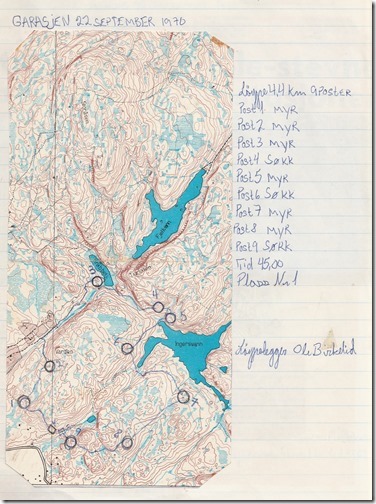 GARASJEN 22 SEPTEMBER 1976
Løype 4,4 km 9 POSTER
Post 1 MYR
Post 2 MYR
Post 3 MYR
Post 4 SØKK
Post 5 MYR
Post 6 SØKK
Post 7 MYR
Post 8 MYR
Post 9 SØKK
Tid 45,00
Plass Nr 1
Løypelegger Ole Birkelid
3
4
5
6